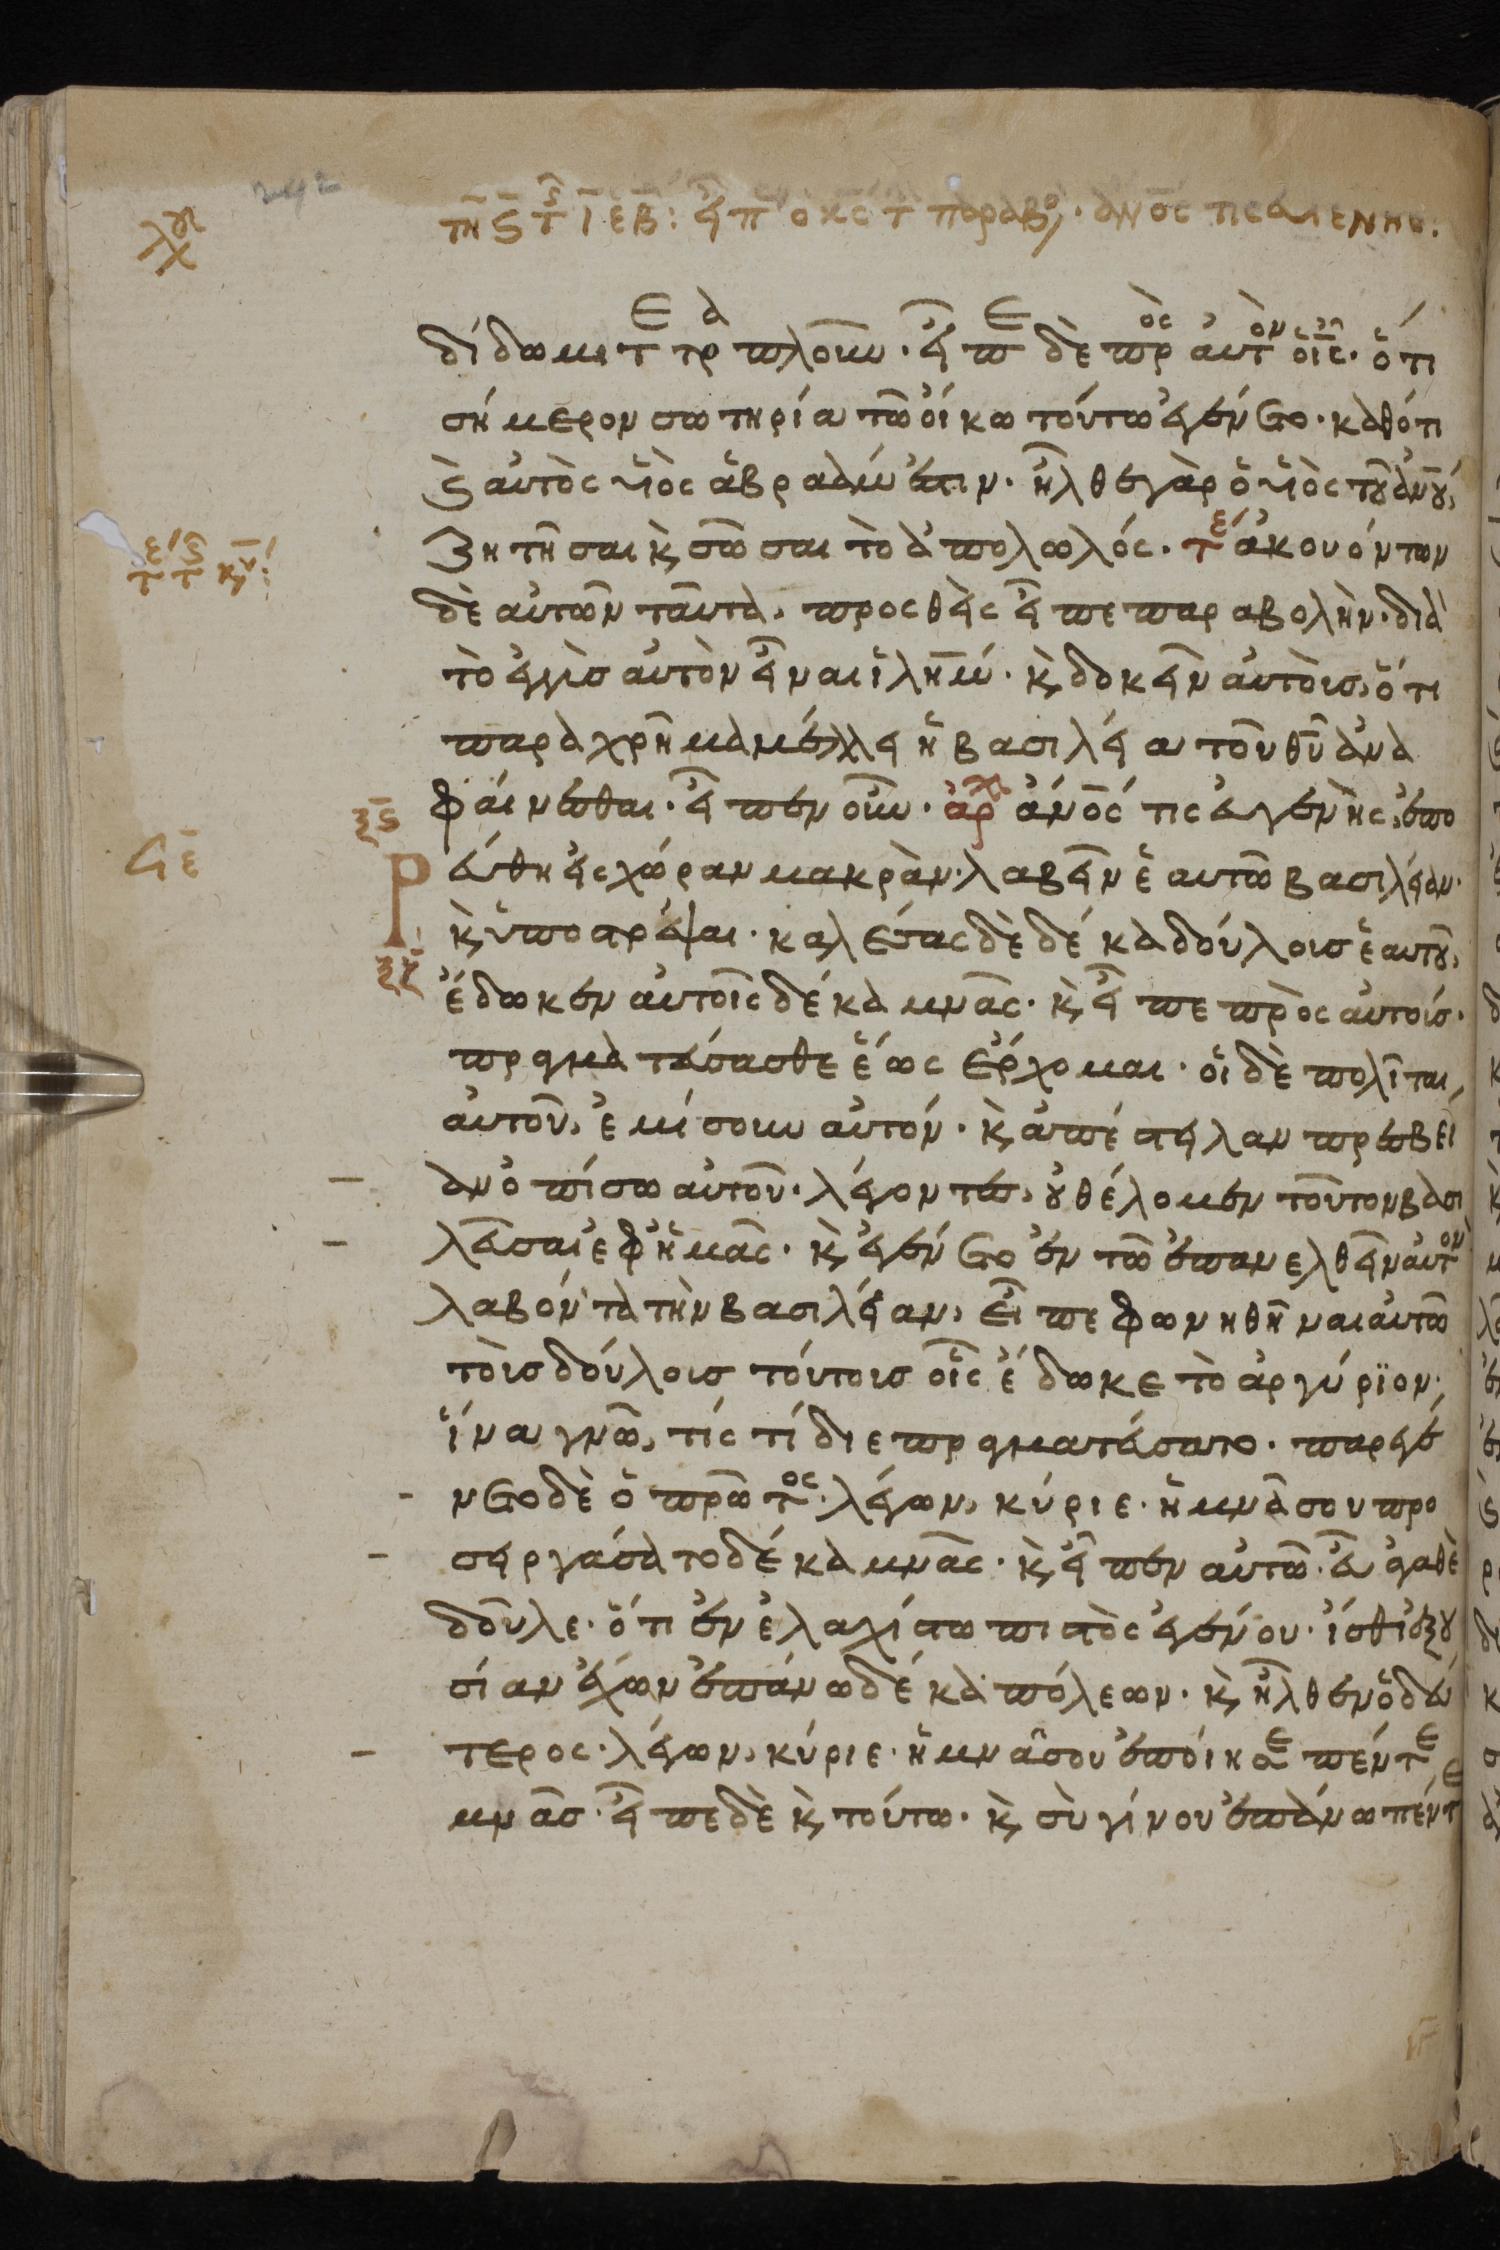 δίδωμι τετραπλοῦν· εἶπε δὲ πρὸς αὐτὸν ὁ ῑς̄· ὅτι
σήμερον σωτηρία τῶ οἴκω τούτω ἐγένετο· καθότι
καὶ αὐτὸς υἱὸς ἀβραάμ ἐστιν· ἦλθε γὰρ ὁ υἱὸς τοῦ ἀν̄ου,
ζητῆσαι κ̀ σῶσαι τὸ ἀπολωλός· τε ἀκουόντων
δὲ αὐτῶν ταῦτα, προσθεὶς εἶπε παραβολὴν· διὰ
τὸ ἐγγὺς αὐτὸν εἶναι ἱλημ̄· κ̀ δοκεῖν αὐτοὶς, ὅτι
παραχρῆμα μέλλει ἡ βασιλεία τοῦ θῡ ἀνα
φαίνεσθαι· εἶπεν οὖν· ἀρχ ἀνο̄ς τις εὐγενὴς, ἐπο
ρεύθη εἰς χώραν μακρὰν· λαβεῖν ἑαυτῶ βασιλείαν·
κ̀ ὑποστρέψαι· καλέσας δὲ δέκα δούλους ἑαυτοῦ,
ἔδωκεν αὐτοῖς δέκα μνᾶς· κ̀ εἶπε πρὸς αὐτούς·
πραγματεύσασθε ἕως ἔρχομαι· οἱ δὲ πολῖται
αὐτοῦ, ἐμίσουν αὐτόν· κ̀ ἀπέστειλαν πρεσβεί
αν ὀπίσω αὐτοῦ· λέγοντες, οὐ θέλομεν τοῦτον βασι
λεῦσαι ἐφ ἡμᾶς· κ̀ ἐγένετο ἐν τῶ ἐπανελθεῖν αὐτὸν
λαβόντα τὴν βασιλείαν, εἶπε φωνηθῆναι αὐτῶ
τοὺς δούλους τούτους οἷς ἔδωκε τὸ ἀργύριον,
ἵνα γνῶ, τίς τί διεπραγματεύσατο· παρεγέ
νετο δὲ ὁ πρῶτος· λέγων, κύριε· ἡ μνᾶ σου προ
σειργάσατο δέκα μνᾶς· κ̀ εἶπεν αὐτῶ· εὖ ἀγαθὲ
δοῦλε· ὅτι ἐν ἐλαχίστω πιστὸς ἐγένου· ἴσθι ἐξου
σίαν ἔχων ἐπάνω δέκα πόλεων· κ̀ ἦλθεν ὁ δεύ
τερος· λέγων, κύριε· ἡ μνᾶ σου ἐποίησε πέντε
μνᾶς· εἶπε δὲ κ̀ τούτω· κ̀ σὺ γίνου ἐπάνω πέντε